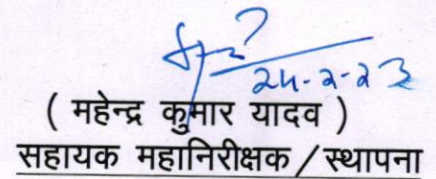 24-2-23
( महेन्द्र कुमार यादव )
सहायक महानिरीक्षक / स्थापना